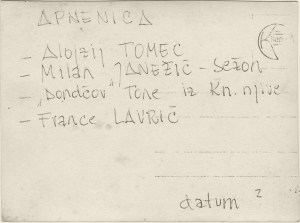 APNENICA
- Alojzij TOMEC
- Milan JANEŽIČ - Sežon
- "Dondčov" Tone iz Kn. njive
- France LAVRIČ
datum ?